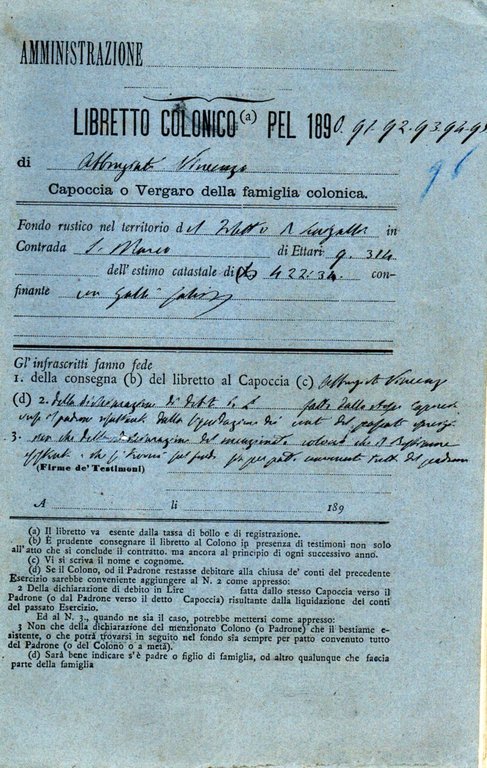 AMMINISTRAZIONE
LIBRETTO COLONICO (a) PEL 1890. 91. 92. 93. 94. 95
96
di Vincenzo
Capoccia o Vergaro della famiglia colonica.
Fondo rustico nel territorio d in
Contrada S. Marco di Ettari 9. 314
dell'estimo catastale di 422:34. con-
finante con Galli
Gl'infrascritti fanno fede
1. della consegna (b) del libretto al Capoccia (c) Vincenzo
(d) 2. della dichiarazione di debito in £ fatta dallo stesso Capoccia
verso il padrone risultante dalla liquidazione dei conti del passato esercizio
3. non che della dichiarazione del menzionato colono che il Bestiame
esistente o che si troverà sul fondo sia per patto convenuto tutto del padrone
(Firme de' Testimoni)
A li 189
(a) Il libretto va esente dalla tassa di bollo e di registrazione.
(b) È prudente consegnare il libretto al Colono in presenza di testimoni non solo
all'atto che si conclude il contratto. ma ancora al principio di ogni successivo anno.
(c) Vi si scriva il nome e cognome.
(d) Se il Colono, od il Padrone restasse debitore alla chiusa de' conti del precedente
Esercizio sarebbe conveniente aggiungere al N. 2 come appresso:
2 Della dichiarazione di debito in Lire fatta dallo stesso Capoccia verso il
Padrone (o dal Padrone verso il detto Capoccia) risultante dalla liquidazione dei conti
del passato Esercizio.
Ed al N. 3., quando ne sia il caso, potrebbe mettersi come appresso:
3 Non che della dichiarazione del menzionato Colono (o Padrone) che il bestiame e-
sistente, o che potrà trovarsi in seguito nel fondo sia sempre per patto convenuto tutto
del Padrone (o del Colono o a metà).
(d) Sarà bene indicare s'è padre o figlio di famiglia, od altro qualunque che faccia
parte della famiglia